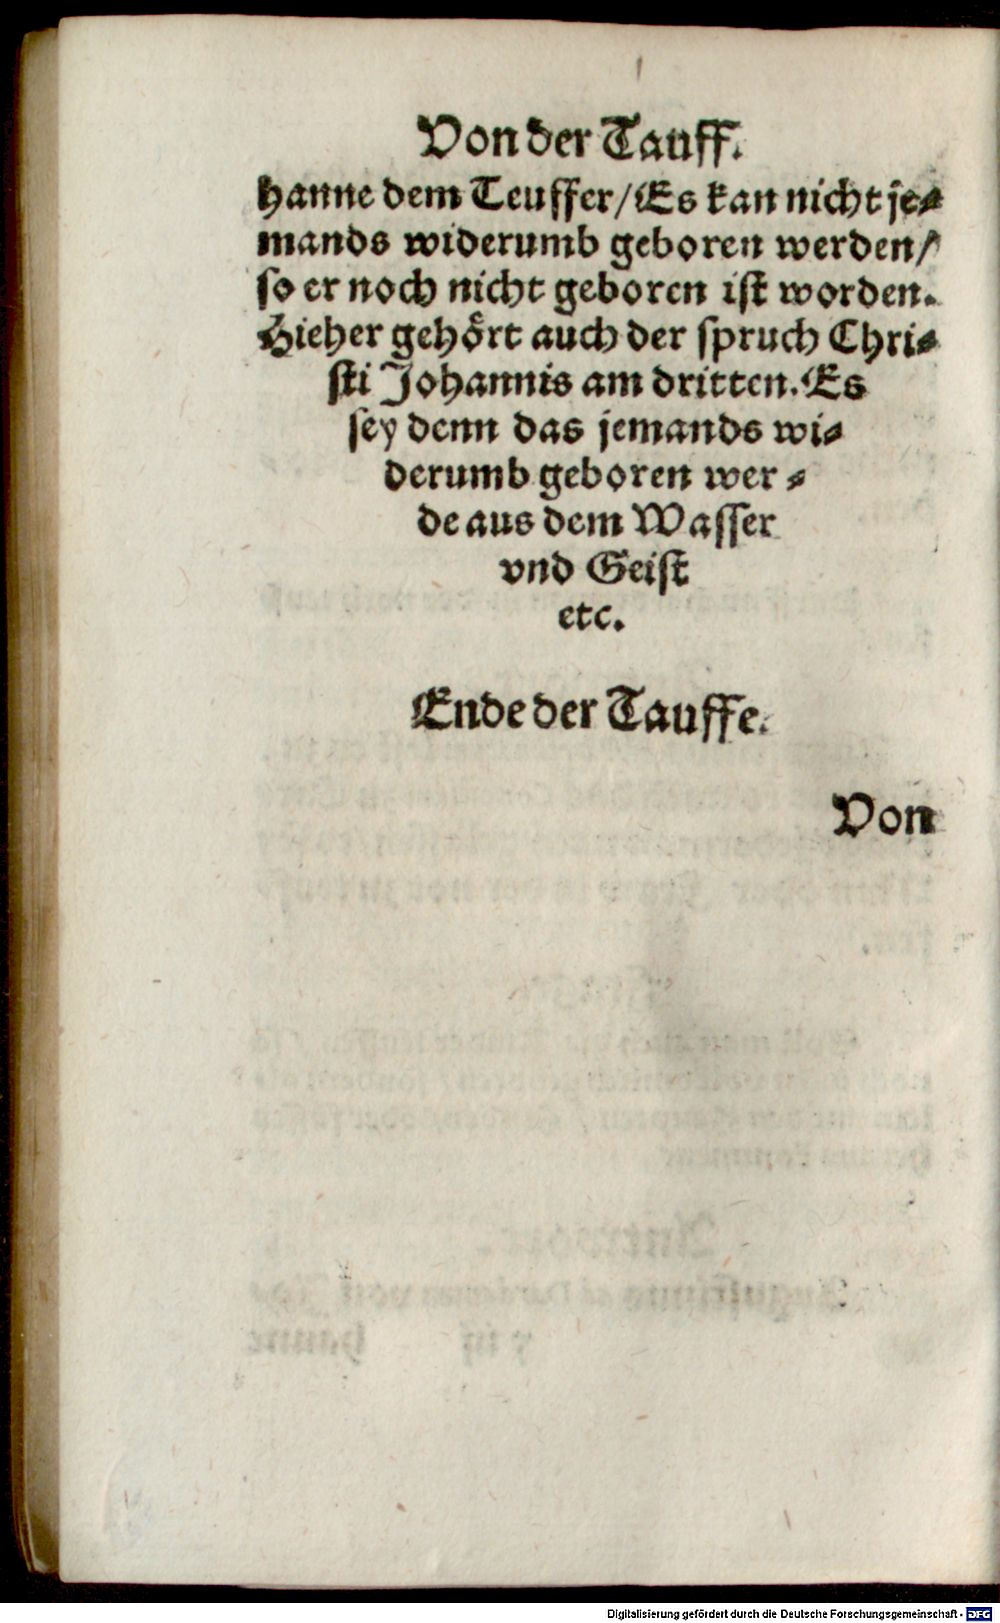 Von der Tauff.
hanne dem Teuffer/Es kan nicht je⸗
mands widerumb geboren werden/
so er noch nicht geboren ist worden.
Hieher gehört auch der spruch Chri⸗
sti Johannis am dritten. Es
sey denn das jemands wi⸗
derumb geboren wer⸗
de aus dem Wasser
vnd Geist
etc.
Ende der Tauffe.
Von
Digitalisierung gefördert durch die Deutsche Forschungsgemeinschaft - DFG